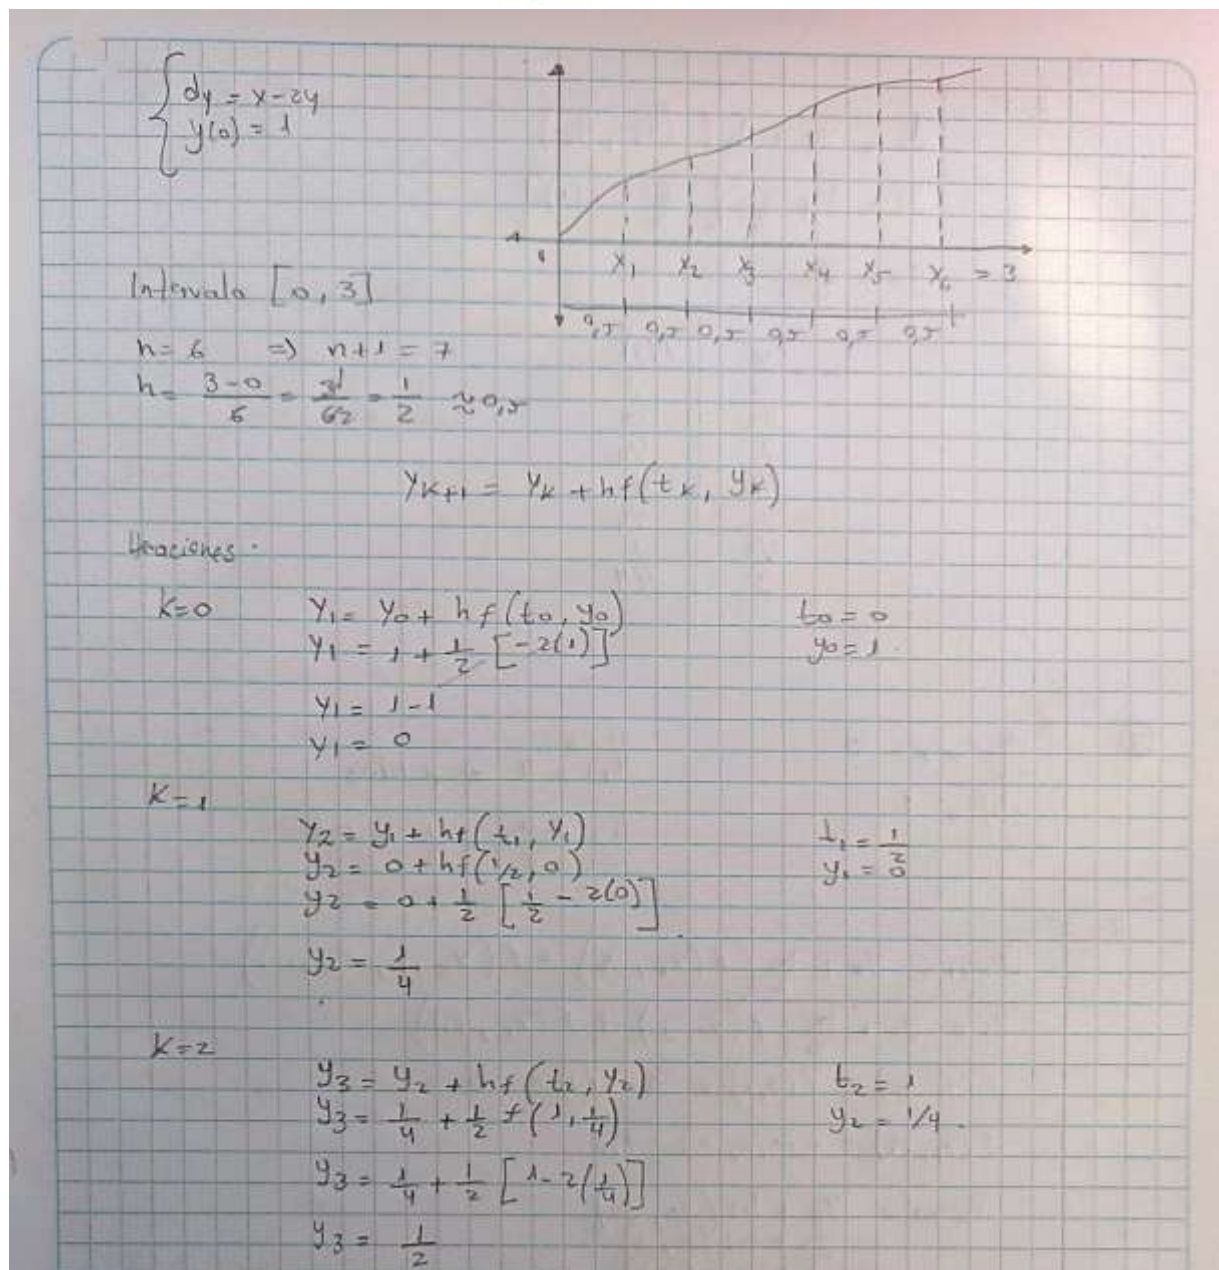 dy = x-2y
y(0) = 1
x1 x2 x3 x4 x5 x6 = 3
0,5 0,5 0,5 0,5 0,5 0,5
Intervalo [0, 3]
n= 6 => n+1 = 7
h= 3-0/6 = 3/6 = 1/2 ≈ 0,5
yk+1 = yk + hf(tk, yk)
Iteraciones.
K=0
y1= y0+ hf(t0, y0) t0 = 0
y1 = 1 + 1/2 [-2(1)] y0= 1.
y1 = 1-1
y1 = 0
K=1
y2 = y1 + hf(t1, y1) t1 = 1/2
y2 = 0 + hf(1/2, 0) y1 = 0
y2 = 0 + 1/2 [1/2 - 2(0)].
y2 = 1/4
K=2
y3 = y2 + hf(t2, y2) t2 = 1
y3 = 1/4 + 1/2 f(1, 1/4) y2 = 1/4.
y3 = 1/4 + 1/2 [1-2(1/4)]
y3 = 1/2